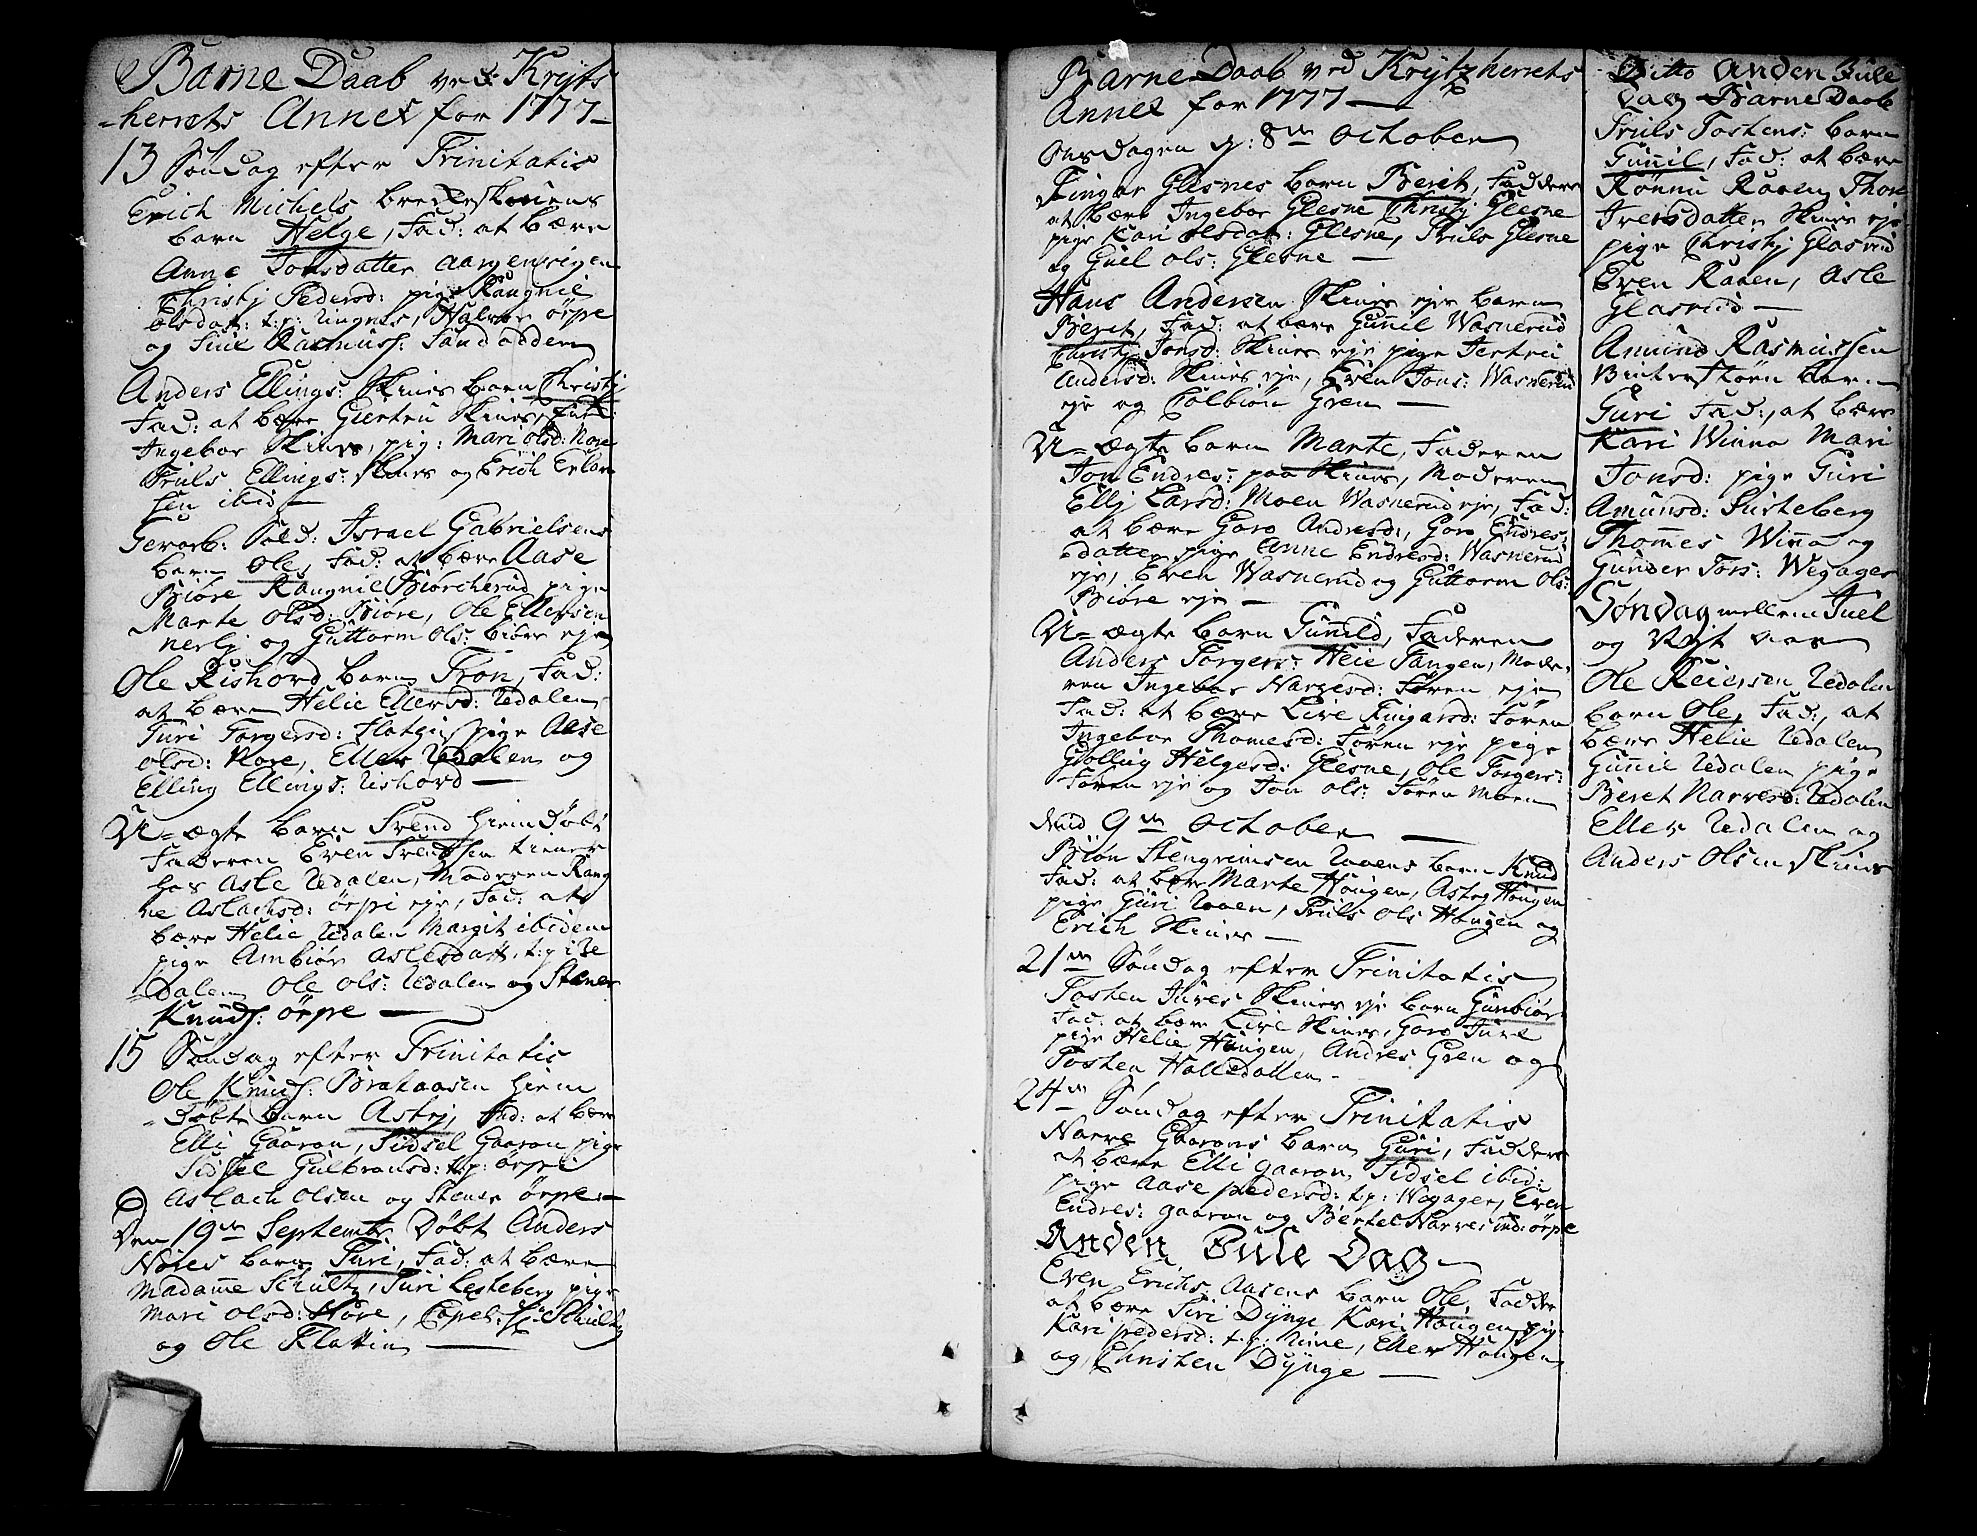 Barne Daab ved Kryts
-herrets Annex for 1777-
13 Søndag efter Trinitatis
Erich Michels
barn Helge, Fad: at bære
Anne Jonsdatter
Christj Pedersd: pige Raugnie
olsdat: t:p: Ringnes, Halvor ørpe
og Rasmuss:
Anders Ellings: Skines barn Christj
Fad: at bære Giertru Skines,
Ingebor Skines, pig: Mari olsd: Nore
Truls Ellings: Skines og Erich Erlan
sen ibid -
Gevorb: Sold: Israel Gabrielsens
barn Ole, Fad: at bære Aase
Biøre Raugnil Biørcherud pige
Marte Olsd: Biøre, Ole Ellensen
og Guttorm Ols: biøre eje
Ole Rishord barn Tron, Fad:
at bære Helie Ellersd: Uedalen
Turi Torgersd: pige Aase
olsd: Nore, Eller Uedalen og
Elling Ellings: Rishord -
U-ægte barn Svend hiemdøbt
Faderen Even Svendsen tiener
hos Asle Uedalen, Moderen Rang
ne Aslachsd: ørpe eje, Fad: at
bære Helie Uedalen Margit ibidem
pige Ambiør Aslesdatt: t:p: Ue
=dalen Ole Ols: Uedalen og Stener
Knuds: ørpe -
15 Søndag efter Trinitatis
Ole Knuds: Brataasen hiem
-døbte barn Astrj, Fad: at bære
Elli Gaaron, Sidsel Gaaron pige
Sidsel Gulbransd: t:p: ørpe
Aslach Olsen og Stener ørpe-
Den 19de Septembr: Døbt Anders
Nores barn Turi, Fad: at bære
Madamme Schultz, Turi Lesteberg pige
Mari olsd: Nore, Capel: Hr: Schultz
og Ole Flattin -
Barne Daab ved Krytzherrets
Annex for 1777 -
Onsdagen d: 8de October
Fingar Glesnes barn Beret, Faddere
at bære Ingebor Glesne Christj Glesne
pige Kari Olsdat: Glesne, Truls Glesne
og Guel ols: Glesne -
Hans Andersen Skines eje barn
Beret, Fad: at bære Gunnil Wasnerud
Christj Jonsd: Skines eje pige Jertru
Andersd: Skines eje, Even Jons: Wasnerud
eje og Tolbiøn Gren -
U-ægte barn Marte, Faderen
Jon Endres: paa Skines, Moderen
Ellj Larsd: Moen Wasnerud eje, Fad:
at bære Goro Andresd:, Goro Endres-
datter pige Anne Endresd: Wasnerud
eje, Even Wasnerud og Guttorm Ols:
Biøre eje -
U-ægte barn Gunild, Faderen
Anders Torgers: Heie Tangen, Mode-
ren Ingebor Narvesd: Søren eje
Fad: at bære Live Fingarsd: Søren
Ingebor Thomesd: Søren eje pige
Helgesd: Glesne, Ole Torgers:
Søren eje og Jon ols: Søren Moen
dend 9de October -
Biøn Stengrimsen Roens barn Knud
Fad: at bære Marte Hougen, Astrj Hougen
pige Guri Roen, Truls Ols Hougen og
Erich Skines -
21de Søndag efter Trinitatis
Tosten Tures Skines eje barn Gunbiør
Fad: at bære Live Skines, Goro Ture
pige Helie Hougen, Andres Gren og
Tosten Halledallen-
24de Søndag efter Trinitatis
Narve Gaarons barn Guri, Faddere
at bære Elli gaaron Sidsel ibid:
pige Aase pedersd: t:p: Wegager, Even
Endres: gaaron og Bertel Narves ørpe
Anden Jule Dag -
Even Erichs: Aasens barn Ole, Fadder
at bære Siri Dynge Kari Hougen pige
Kari pedersd: t:p: Rime, Eller Hougen
og Christen Dynge -
Ditto Anden Jule
Dag Barne Daab
Truls Tostens: barn
Gunnil, Fad: at bære
Rønnu Raaen, Thore
Iversdatter Skines eje
pige Christj Glasrud
Even Raaen, Asle
Glasrud -
Amund Rasmussen
barn
Guri Fad:, at bære
Kari Winna Mari
Jonsd: pige Guri
Amunsd: Lusteberg
Thommes Winna og
Gunder Tors: Wegager
Søndag mellem Juel
og Nyt aar
Ole Reiersen Uedalen
barn Ole, Fad:, at
bære Helie Uedalen
Gunnil Uedalen pige
Beret Narvesd: Uedalen
Eller Uedalen og
Anders Olsen Skines